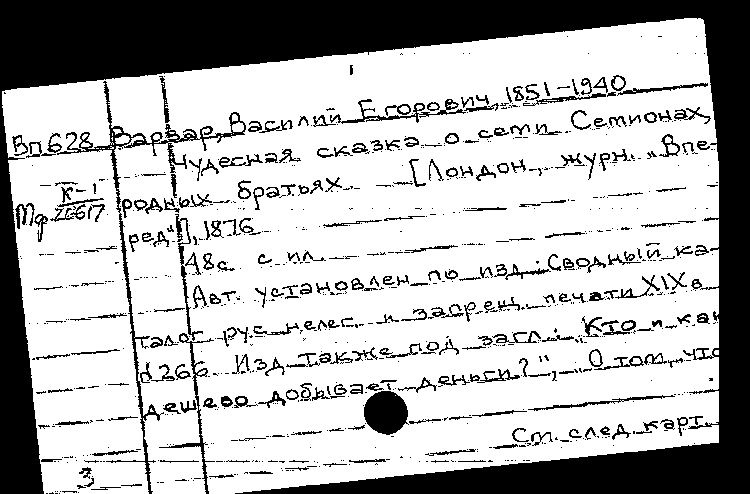 Вп628 Варзар, Василий Егорович, 1851-1940.
Чудесная сказка о сети Семионах,
родных братьях. [Лондон, журн. „Впе-
ред"], 1876
48с. с ил.
Авт. установлен по изд.: Сводный ка-
талог рус. нелег. и запрещ. печати XIX в
266. Изд. также под загл.: „Кто и как
дешево добывает деньги?", „О том, что
См. след. карт.
Мф К-1
3